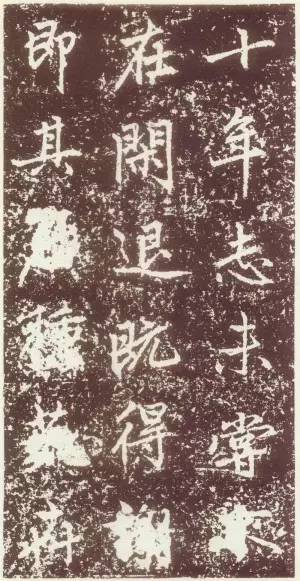 十年志未嘗不
在閑退既得謝
即其